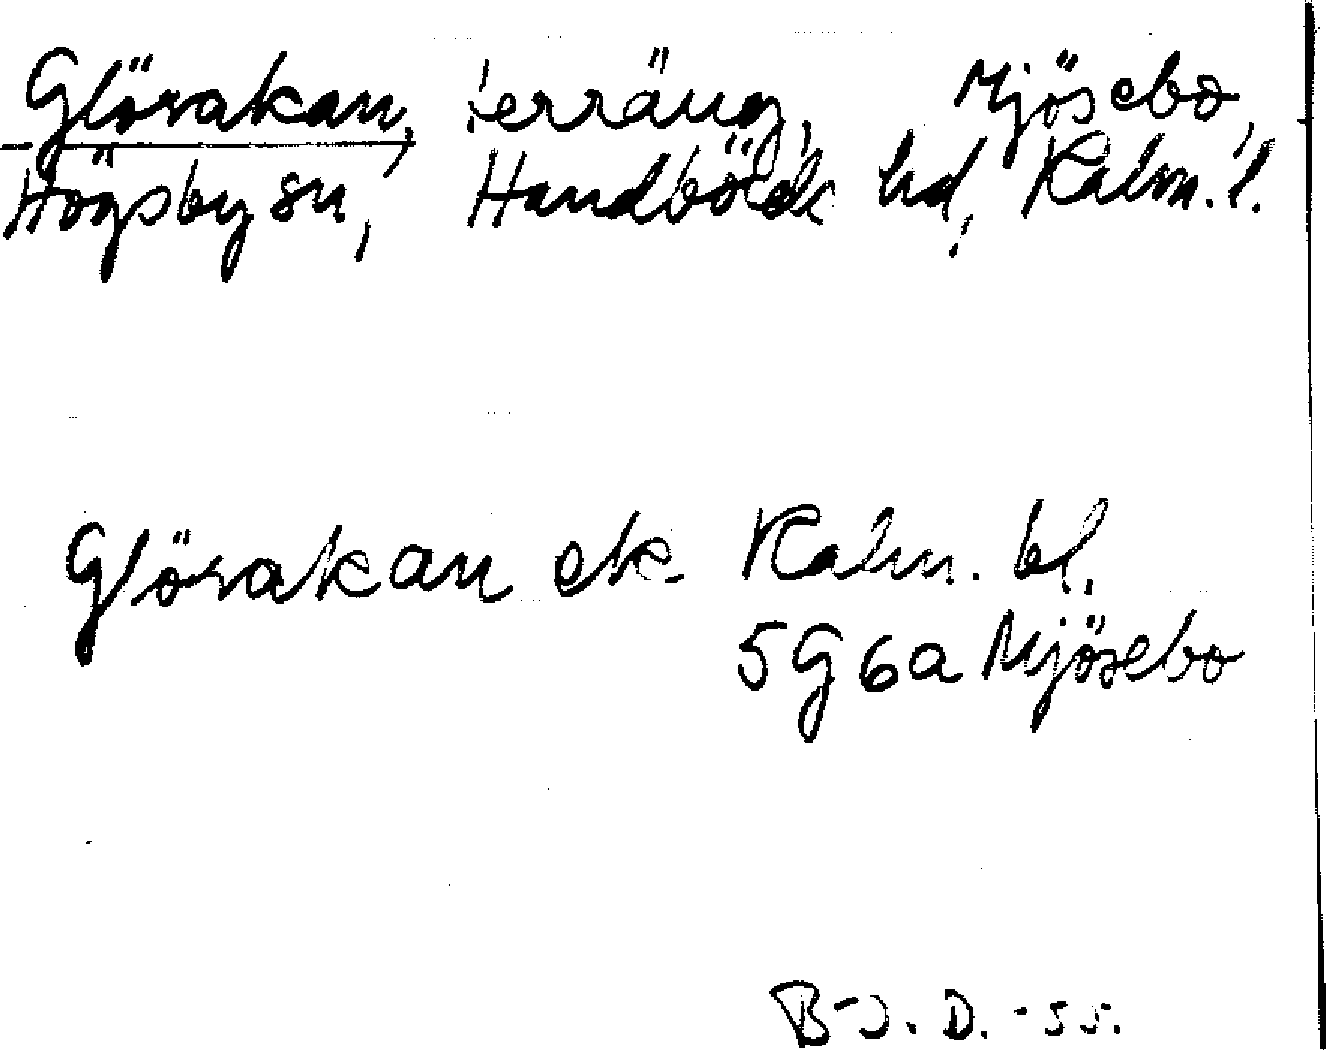 Glörakan, terräng, Mjösebo,
Högsby sn, Handbörds hd, Kalm. l.
Glörakan ek. Kalm. bl.
5G6a Mjösebo
B-J. D. -55.